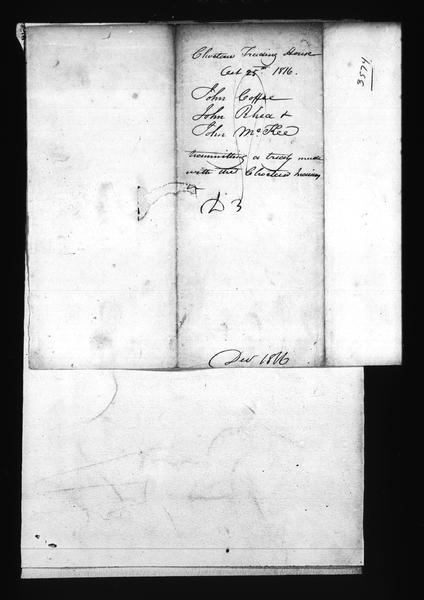 Choctaw Trading House
Oct 25th 1816.
John Coffee
John Rhea &
John McKee
transmitting a treaty made
with the Choctaw
D 3
Dec 1816
3574